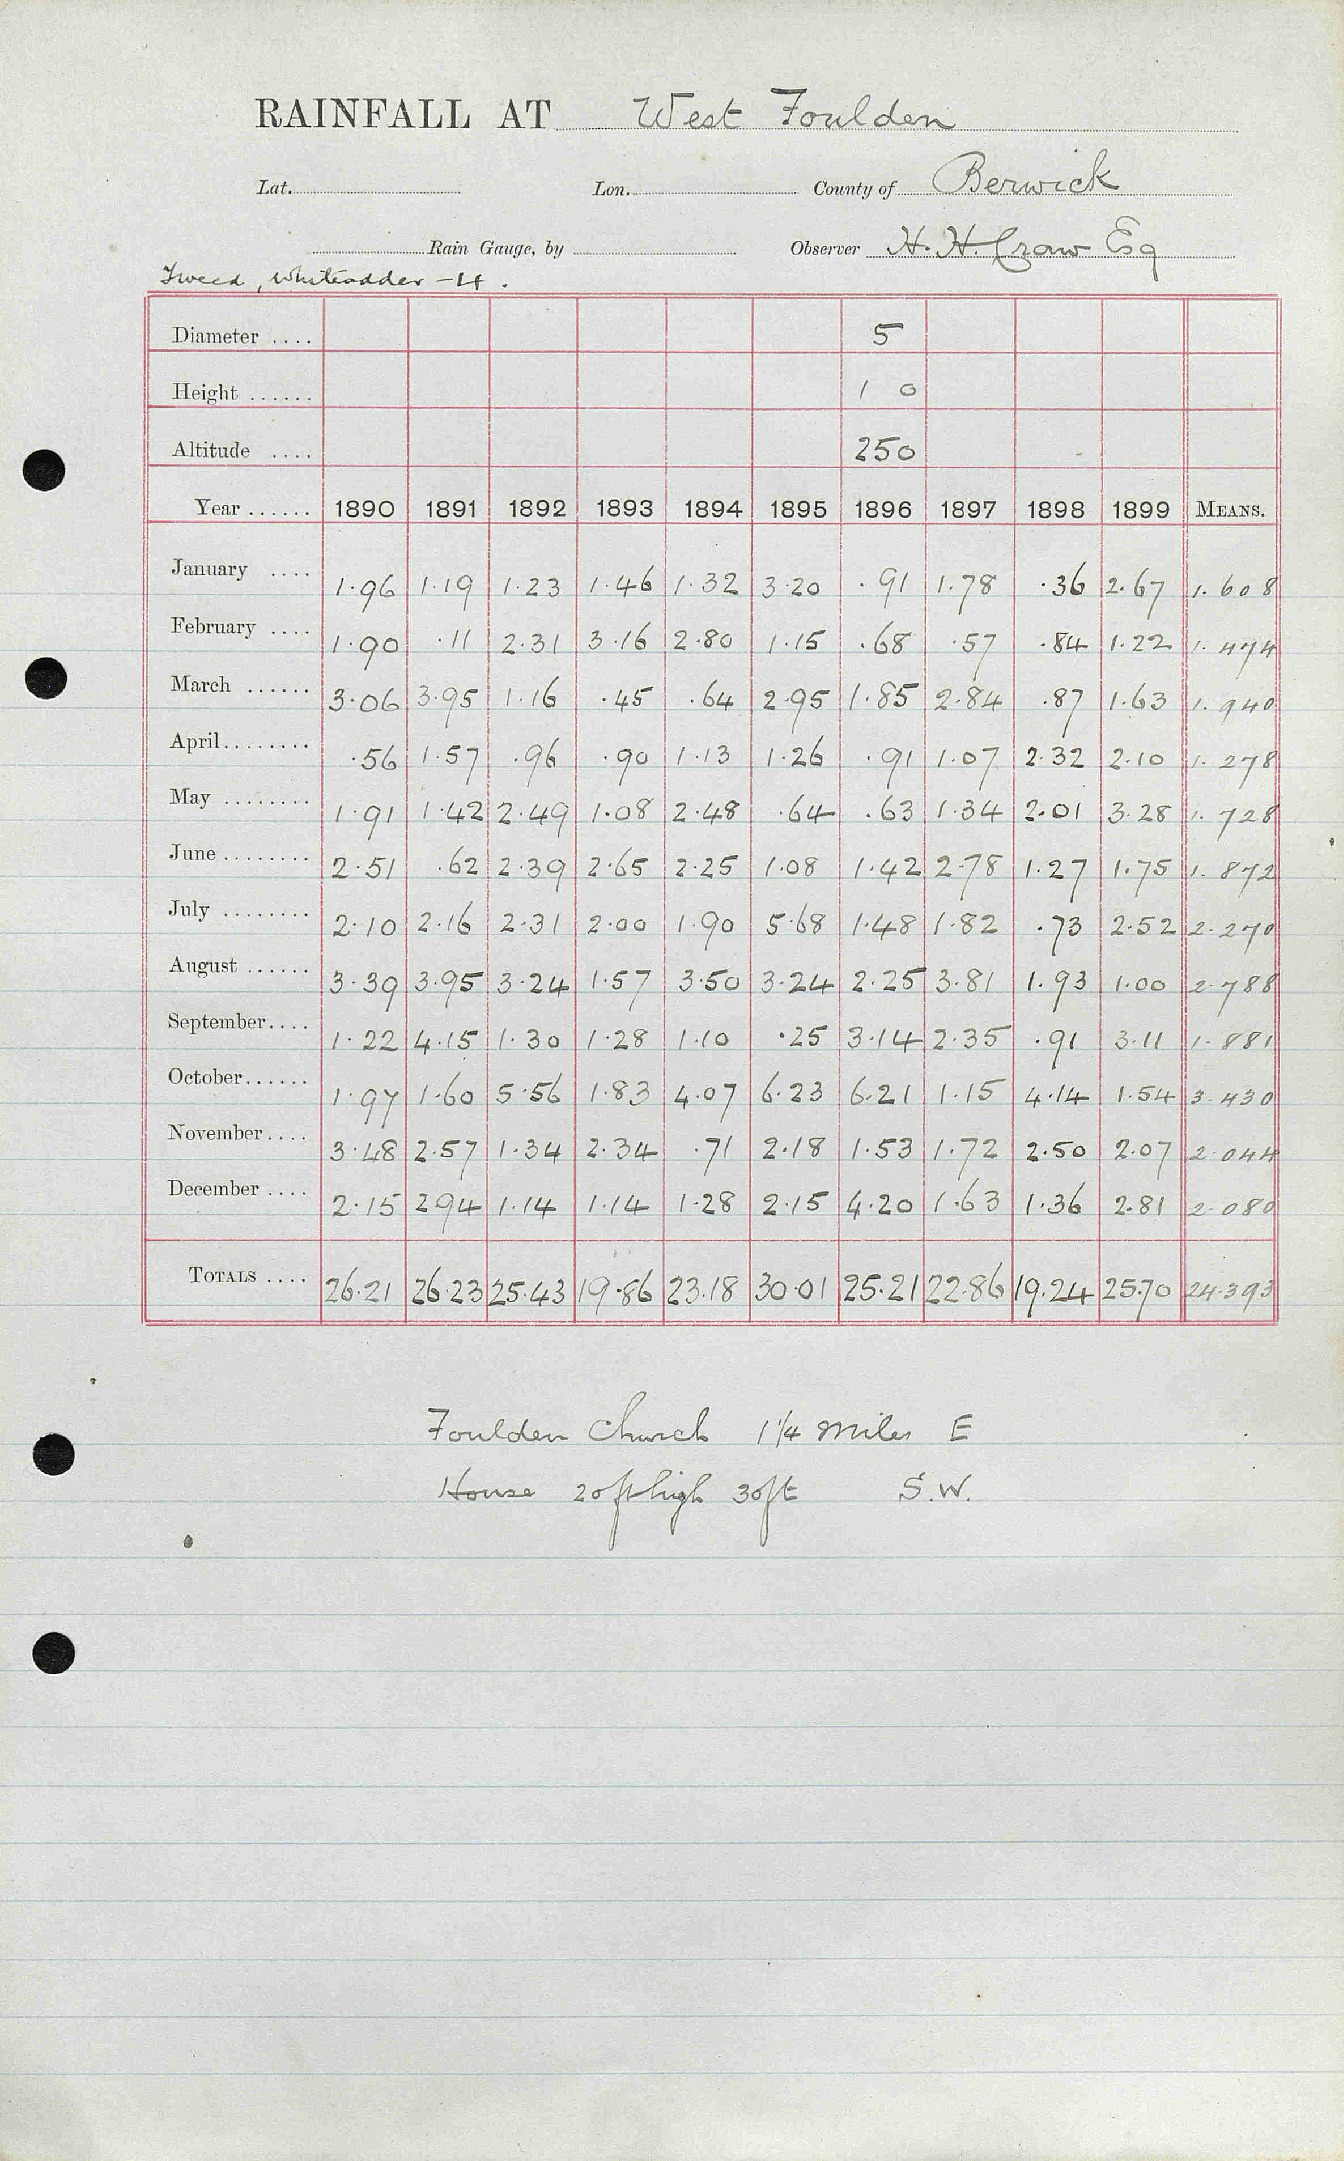 RAINFALL AT West Foulden
Lat. Lon. County of Berwick
Rain Gauge, by Observer H. H. Craw Esq
Tweed, Whiteadder - 4.
Diameter .... 5
Height ...... 1 0
Altitude .... 250
Year ...... 1890 1891 1892 1893 1894 1895 1896 1897 1898 1899 MEANS.
January .... 1.96 1.19 1.23 1.46 1.32 3.20 .91 1.78 .36 2.67 1.608
February .... 1.90 .11 2.31 3.16 2.80 1.15 .68 .57 .84 1.22 1.474
March ...... 3.06 3.95 1.16 .45 .64 2.95 1.85 2.84 .87 1.63 1.940
April ........ .56 1.57 .96 .90 1.13 1.26 .91 1.07 2.32 2.10 1.278
May ........ 1.91 1.42 2.49 1.08 2.48 .64 .63 1.34 2.01 3.28 1.728
June ........ 2.51 .62 2.39 2.65 2.25 1.08 1.42 2.78 1.27 1.75 1.872
July ........ 2.10 2.16 2.31 2.00 1.90 5.68 1.48 1.82 .73 2.52 2.270
August ...... 3.39 3.95 3.24 1.57 3.50 3.24 2.25 3.81 1.93 1.00 2.788
September .... 1.22 4.15 1.30 1.28 1.10 .25 3.14 2.35 .91 3.11 1.881
October ...... 1.97 1.60 5.56 1.83 4.07 6.23 6.21 1.15 4.14 1.54 3.430
November .... 3.48 2.57 1.34 2.34 .71 2.18 1.53 1.72 2.50 2.07 2.044
December .... 2.15 2.94 1.14 1.14 1.28 2.15 4.20 1.63 1.36 2.81 2.080
TOTALS .... 26.21 26.23 25.43 19.86 23.18 30.01 25.21 22.86 19.24 25.70 24.393
Foulden Church 1 1/4 miles E
House 20 ft high 30 ft S.W.